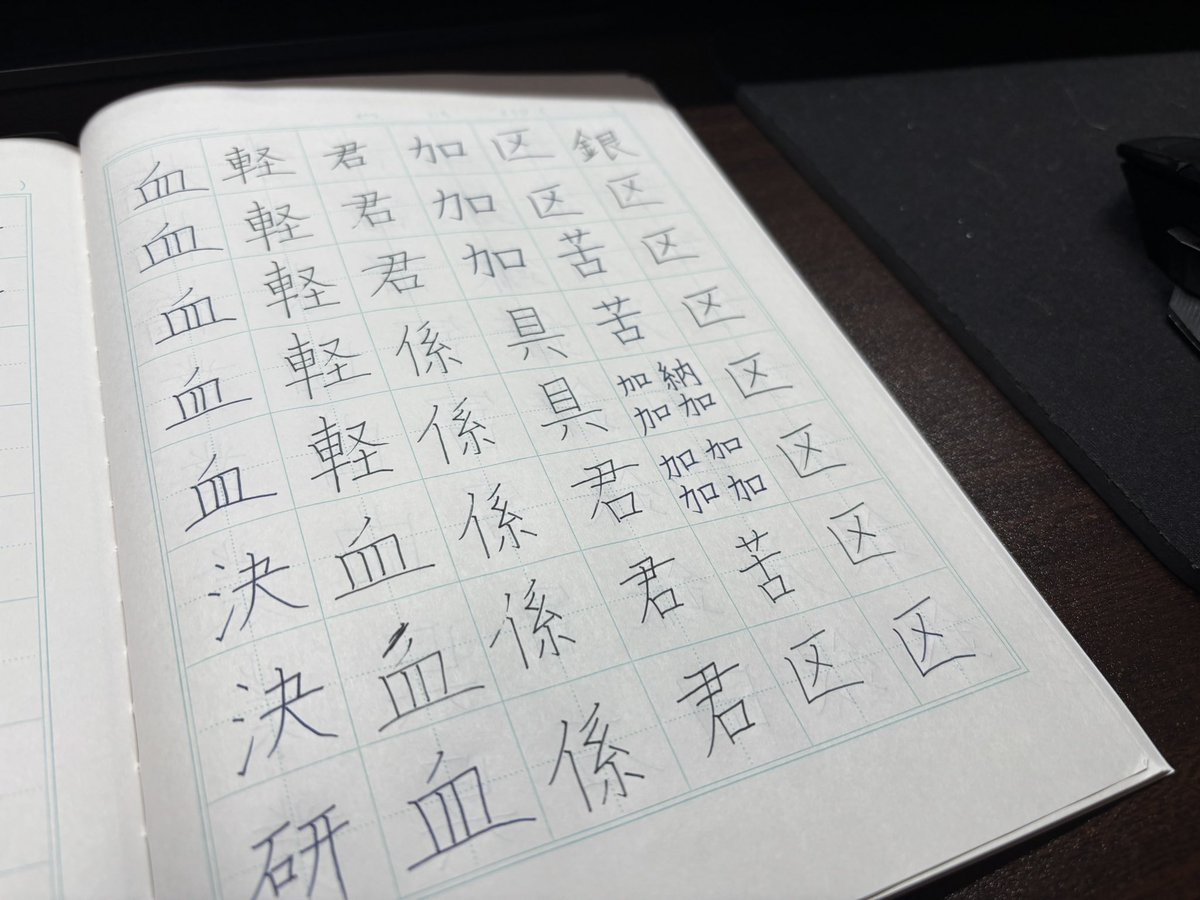 銀区区区区区区区
区区苦苦加納加加加加加加苦区
加加加具具君君君
君君君係係係係係
軽軽軽軽軽血血血
血血血血血決決研